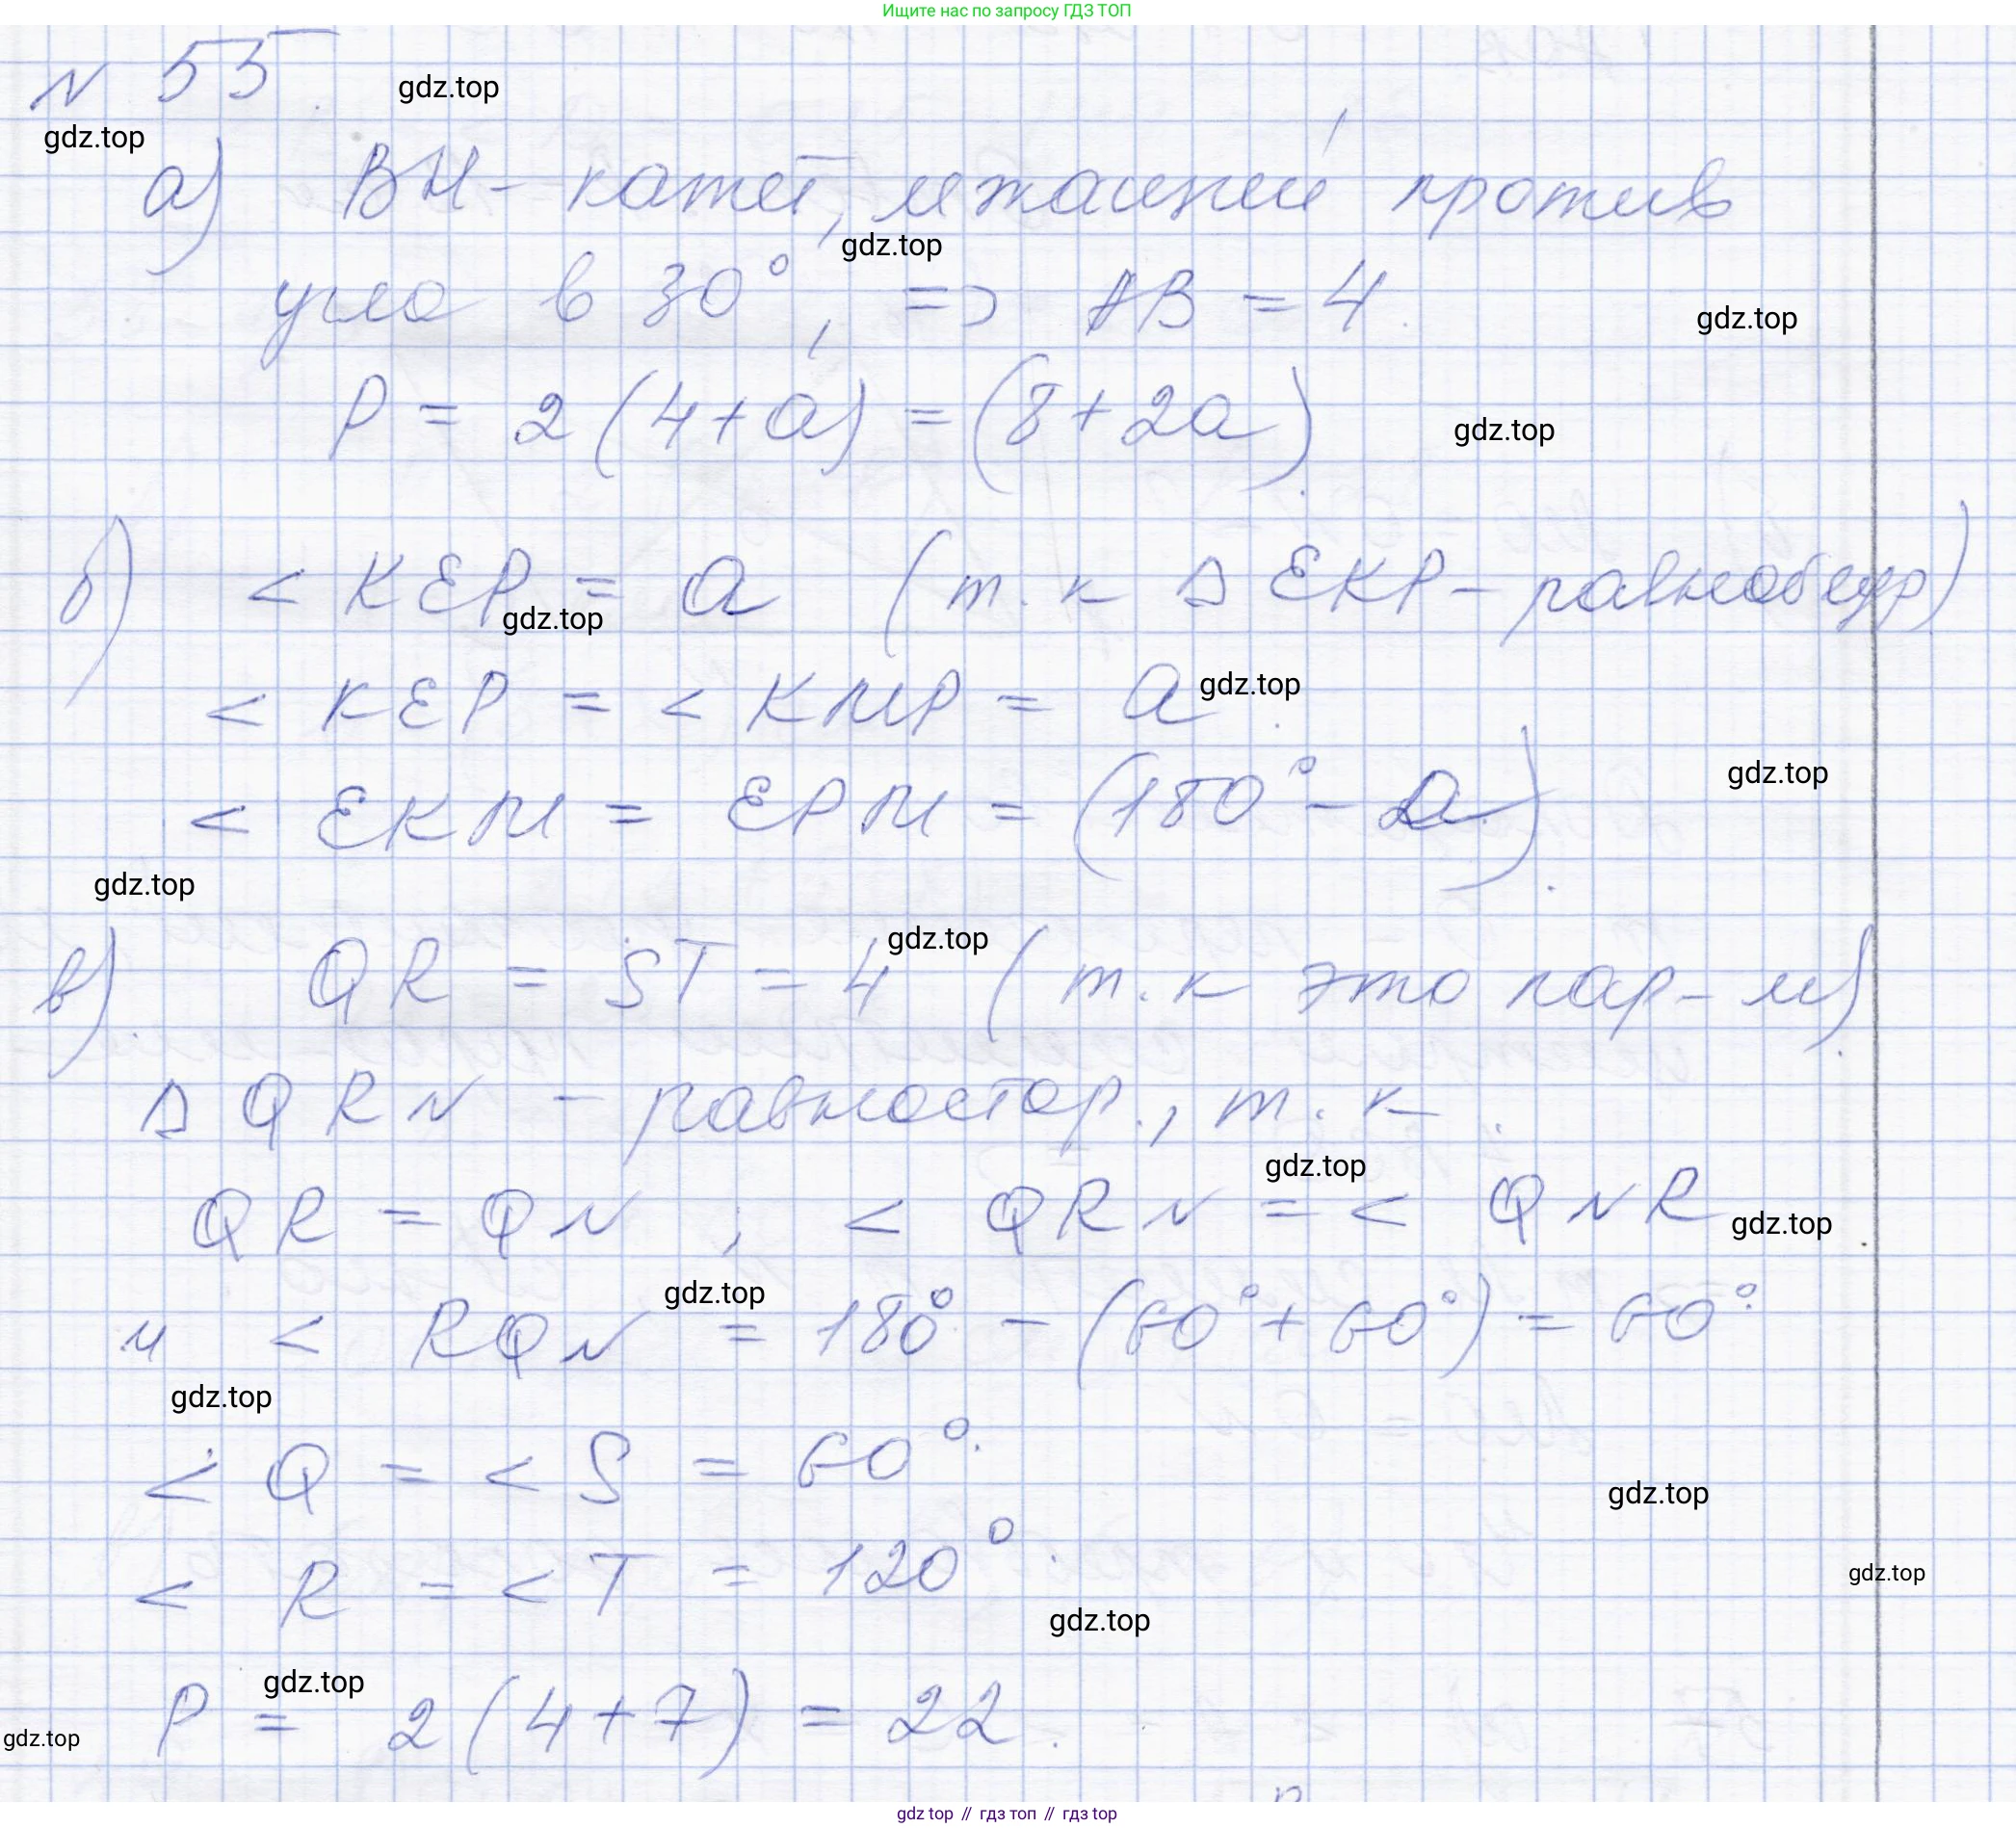 Ищите нас по запросу ГДЗ ТОП
N 55.
gdz.top
gdz.top
а) BH - катет, лежащий против
gdz.top
угла в 30°, => AB = 4.
gdz.top
P = 2(4+a) = (8+2a).
gdz.top
б) < KEP = a (т.к Δ EKP - равнобедр)
gdz.top
< KEP = < KMP = a.
gdz.top
< EKM = EPM = (180° - a).
gdz.top
gdz.top
gdz.top
в). QR = ST = 4 (т.к это пар-м).
Δ QRN - равностор., т.к.
gdz.top
QR = QN, < QRN = < QNR
gdz.top
gdz.top
и < RQN = 180° - (60° + 60°) = 60°.
gdz.top
< Q = < S = 60°.
gdz.top
< R = < T = 120°.
gdz.top
gdz.top
gdz.top
P = 2(4+7) = 22.
gdz.top
gdz top // гдз топ // гдз top